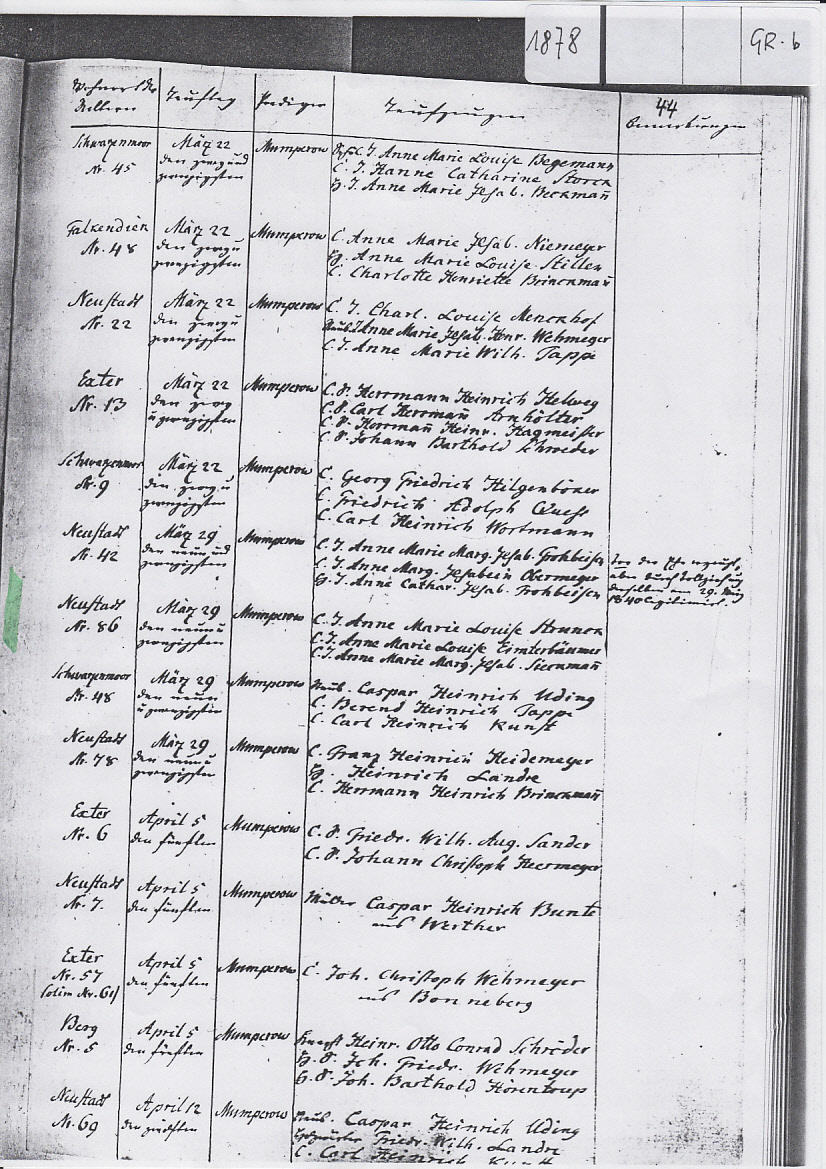 1878
GR. b
44
Wohnort der Eltern
Tauftag
Prediger
Taufzeugen
Bemerkungen
Schwarzenmoor Nr. 45
März 22
den zwey und
zwanzigsten
Mumperow
J. Anne Marie Louise Begemann
C. J. Hanne Catharine Storck
H. J. Anne Marie Ilsab. Beckmañ
Falkendiek Nr. 48
März 22
den zwey u
zwanzigsten
Mumperow
C. Anne Marie Ilsab. Niemeyer
H. Anne Marie Louise Stillen
C. Charlotte Henriette Brinckmañ
Neustadt Nr. 22
März 22
den zwey u
zwanzigsten
Mumperow
C. J. Charl. Louise Menckhof
Neub. J Anne Marie Ilsab. Henr. Wehmeyer
C. J. Anne Marie Wilh. Tappe
Exter Nr. 13
März 22
den zwey
u zwanzigsten
Mumperow
C. S. Herrmann Heinrich Hellweg
C. S. Carl Herrmañ Arnhölter
C. S. Herrman Heinr. Hagmeister
C. S. Johann Barthold Schroeder
Schwarzenmoor Nr. 9
März 22
den zwey u
zwanzigsten
Mumperow
C. Georg Friedrich Hilgenböker
C. Friedrich Adolph Quest
C. Carl Heinrich Wortmann
Neustadt Nr. 42
März 29
den neun und
zwanzigsten
Mumperow
C. J. Anne Marie Marg. Ilsab. Frohbeisen
C. J. Anne Marg. Ilsabein Obermeyer
H. J. Anne Cathar. Ilsab. Frohbeisen
vor der Ehe erzeugt,
aber durch Vollziehung
derselben am 29. März
1840 legitimirt.
Neustadt Nr. 86
März 29
den neun u
zwanzigsten
Mumperow
C. J. Anne Marie Louise Strunck
C. J. Anne Marie Louise Eimterbäumer
C. J. Anne Marie Marg. Ilsab. Sieckmañ
Schwarzenmoor Nr. 48
März 29
den neun
u zwanzigsten
Mumperow
Neub. Caspar Heinrich Uding
C. Berend Heinrich Tappe
C. Carl Heinrich Kunst
Neustadt Nr. 78
März 29
den neun u
zwanzigsten
Mumperow
C. Franz Heinrich Heidemeyer
H. Heinrich Landre
C. Herrmann Heinrich Brinckmañ
Exter Nr. 6
April 5
den fünften
Mumperow
C. S. Friedr. Wilh. Aug. Sander
C. S. Johann Christoph Heermeyer
Neustadt Nr. 7.
April 5
den fünften
Mumperow
Müller Caspar Heinrich Bunte
aus Werther
Exter
Nr. 57
(olim Nr. 61)
April 5
den fünften
Mumperow
C. Joh. Christoph Wehmeyer
aus Bonneberg
Berg Nr. 5
April 5
den fünften
Mumperow
Knecht Heinr. Otto Conrad Schröder
H. S. Joh. Friedr. Wehmeyer
H. S. Joh. Barthold Hörentrup
Neustadt Nr. 69
April 12
den zwölften
Mumperow
Neub. Caspar Heinrich Uding
Friedr. Wilh. Landre
C. Carl Heinrich Kunst